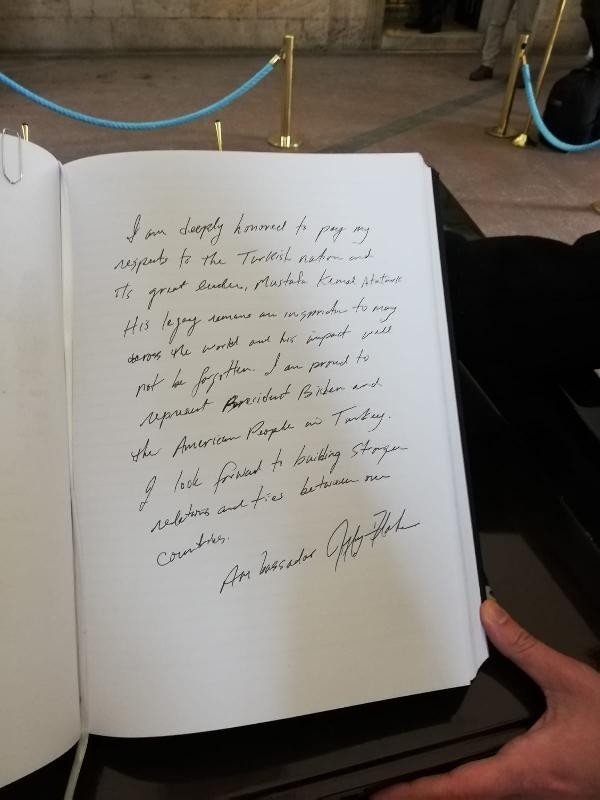 I am deeply honored to pay my
respects to the Turkish nation and
its great leader, Mustafa Kemal Ataturk
His legacy remains an inspiration to many
across the world and his impact will
not be forgotten. I am proud to
represent President Biden and
the American People in Turkey.
I look forward to building stronger
relations and ties between our
countries.
Ambassador Jeffry Flake